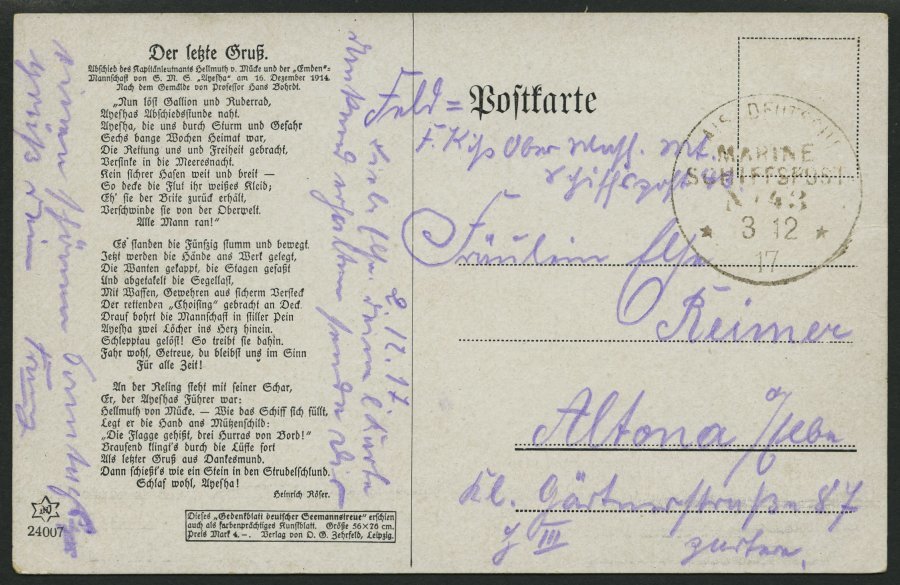 Der letzte Gruß.
Abschied des Kapitänleutnants Hellmuth v. Mücke und der „Emden"-
Mannschaft von S. M. S. „Ayesha" am 16. Dezember 1914.
Nach dem Gemälde von Professor Hans Bohrdt.
„Nun löst Gallion und Ruderrad,
Ayeshas Abschiedsstunde naht.
Ayesha, die uns durch Sturm und Gefahr
Sechs bange Wochen Heimat war,
Die Rettung uns und Freiheit gebracht,
Versinke in die Meeresnacht.
Kein sichrer Hafen weit und breit —
So decke die Flut ihr weißes Kleid;
Eh' sie der Brite zurück erhält,
Verschwinde sie von der Oberwelt.
Alle Mann ran!"
Es standen die Fünfzig stumm und bewegt.
Jetzt werden die Hände ans Werk gelegt,
Die Wanten gekappt, die Stagen gefaßt
Und abgetakelt die Segellast,
Mit Waffen, Gewehren aus sicherm Versteck
Der rettenden „Choising" gebracht an Deck.
Drauf bohrt die Mannschaft in stiller Pein
Ayesha zwei Löcher ins Herz hinein.
Schlepptau gelöst! So treibt sie dahin.
Fahr wohl, Getreue, du bleibst uns im Sinn
Für alle Zeit!
An der Reling steht mit seiner Schar,
Er, der Ayeshas Führer war:
Hellmuth von Mücke. — Wie das Schiff sich füllt,
Legt er die Hand ans Mützenschild:
„Die Flagge gehißt, drei Hurras von Bord!"
Brausend klingt's durch die Lüfte fort
Als letzter Gruß aus Dankesmund.
Dann schießt's wie ein Stein in den Strudelschlund.
Schlaf wohl, Ayesha!
Heinrich Röser.
24007
Dieses „Gedenkblatt deutscher Seemannstreue" erschien
auch als farbenprächtiges Kunstblatt. Größe 56×76 cm.
Preis Mark 4.–. Verlag von O. G. Zehrfeld, Leipzig.
2. 12. 17
Liebe Else. Deine l. Karte
dankend erhalten sende Dir
Feld = Postkarte
schiffspost
DEUTSCHE
MARINE
SCHIFFSPOST
No 43
★ 3 12 ★
17
Fräulein Else
Reimer
Altona /Elbe
Kl. Gärtnerstraße 87
III